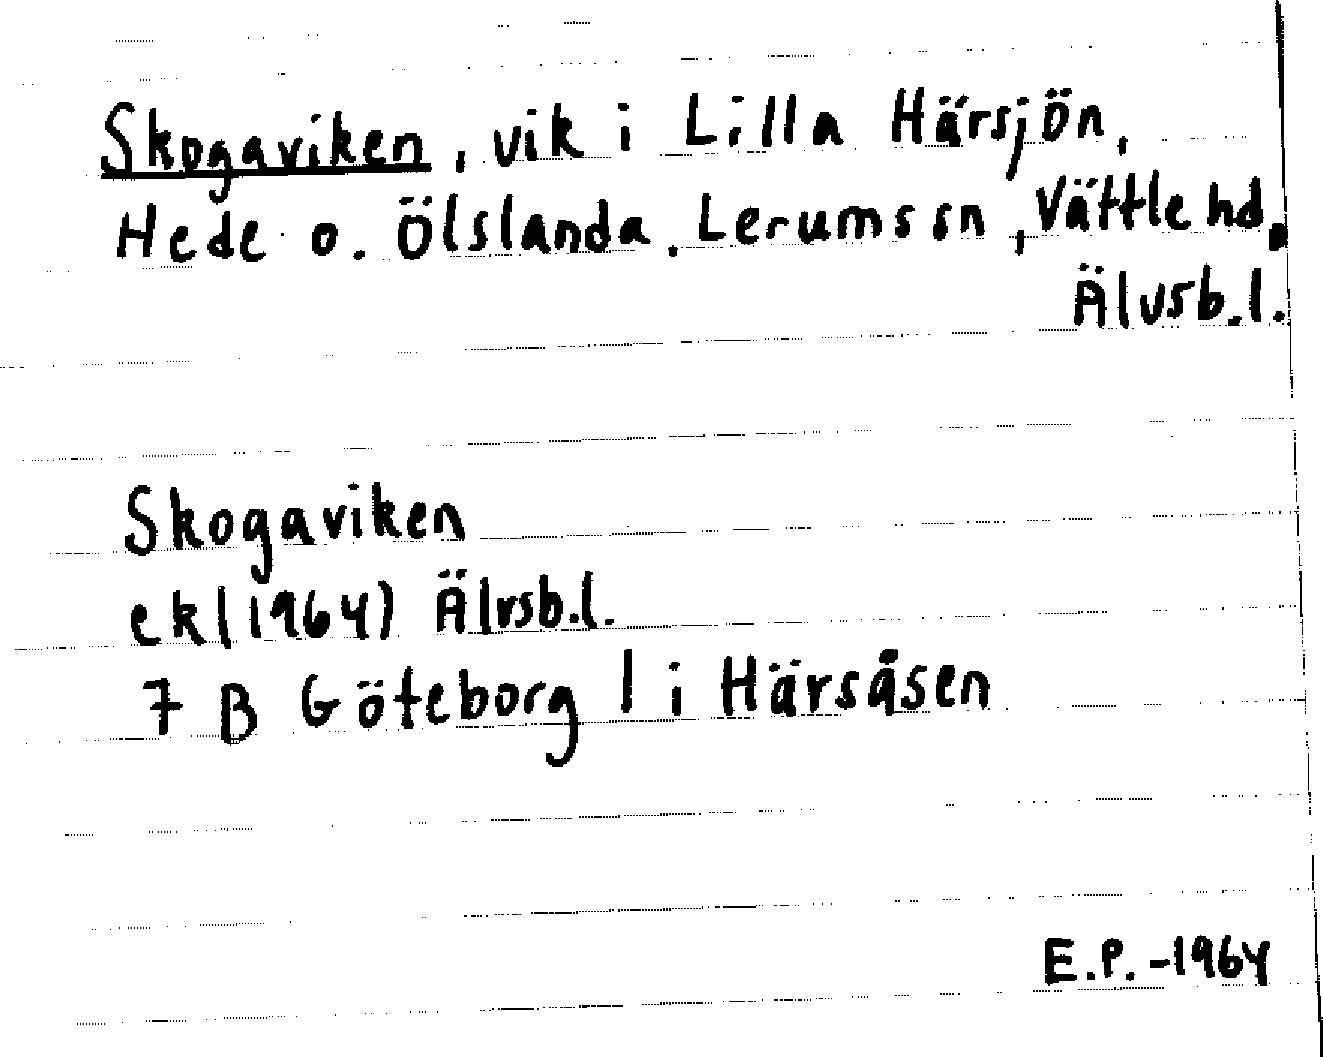 Skogaviken, vik i Lilla Härsjön,
Hede o. Ölslanda, Lerums sn, Vättle hd,
Älvsb.l.
Skogaviken
ek (1964) Älvsb.l.
7 B Göteborg l i Härsåsen
E.P. -1964